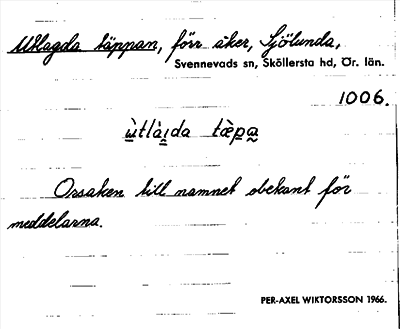 Utlagda täppan, förr åker, Sjölunda,
Svennevads sn, Sköllersta hd, Ör. län.
1006.
ẁtlàịda tæ̀pa̰
Orsaken till namnet obekant för
meddelarna.
PER-AXEL WIKTORSSON 1966.